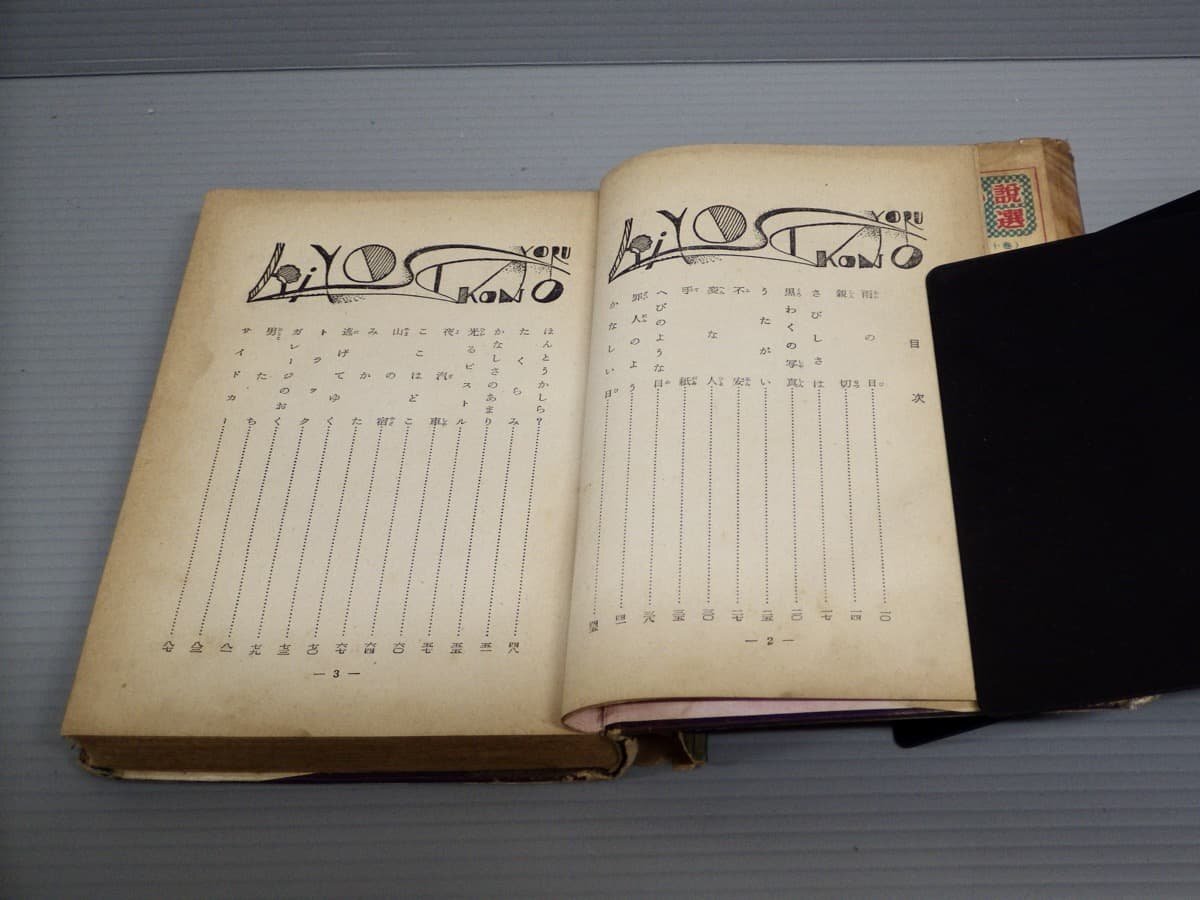 説選
(上巻)
KiYOSI KONO YORU
目次
雨の日……一〇
親切……一四
さびしさは……一七
黒わくの写真……二〇
うたがい……二五
不安……二七
変な人……三〇
手紙……三五
へびのような目……三八
罪人のよう……四一
かなしい日……四五
— 2 —
KiYOSI KONO YORU
ほんとうかしら?……四八
たくらみ……五一
かなしさのあまり……五五
光るピストル……五七
夜汽車……六〇
ここはどこ……六四
山の宿……六七
みかた……七〇
逃げてゆく……七三
トラック……七九
ガレージのおく……八一
男たち……八三
サイドカー……八七
— 3 —